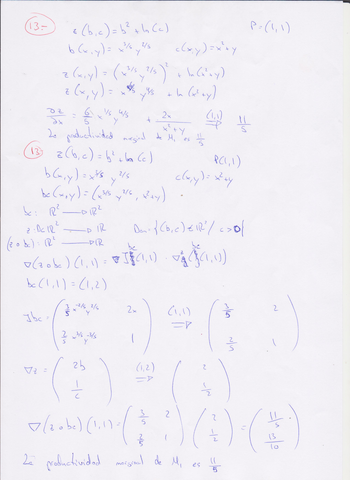 13.-
z(b,c) = b² + ln(c)    P = (1,1)
b(x,y) = x^3/5 y^2/5    c(x,y) = x²+y
z(x,y) = (x^3/5 y^2/5)² + ln(x²+y)
z(x,y) = x^6/5 y^4/5 + ln(x²+y)
∂z/∂x = 6/5 x^1/5 y^4/5 + 2x/(x²+y) (1,1) ⇒ 11/5
La productividad marginal de M₁ es 11/5
13
z(b,c) = b² + ln(c)    P(1,1)
b(x,y) = x^3/5 y^2/5    c(x,y) = x²+y
bc(x,y) = (x^3/5 y^2/5, x²+y)
bc: ℝ² → ℝ²
z: D⊂ℝ² → ℝ    D = {(b,c) ∈ ℝ² / c > 0}
(z∘bc): ℝ² → ℝ
∇(z∘bc)(1,1) = Jbc(1,1) · ∇z(bc)(1,1)
bc(1,1) = (1,2)
Jbc = (3/5 x^-2/5 y^2/5    2x    (1,1) ⇒    (3/5    2
2/5 x^3/5 y^-3/5    1)    2/5    1)
∇z = (2b    (1,2) ⇒    (2
1/c)    1/2)
∇(z∘bc)(1,1) = (3/5    2    (2    =    (11/5
2/5    1)    1/2)    13/10)
La productividad marginal de M₁ es 11/5